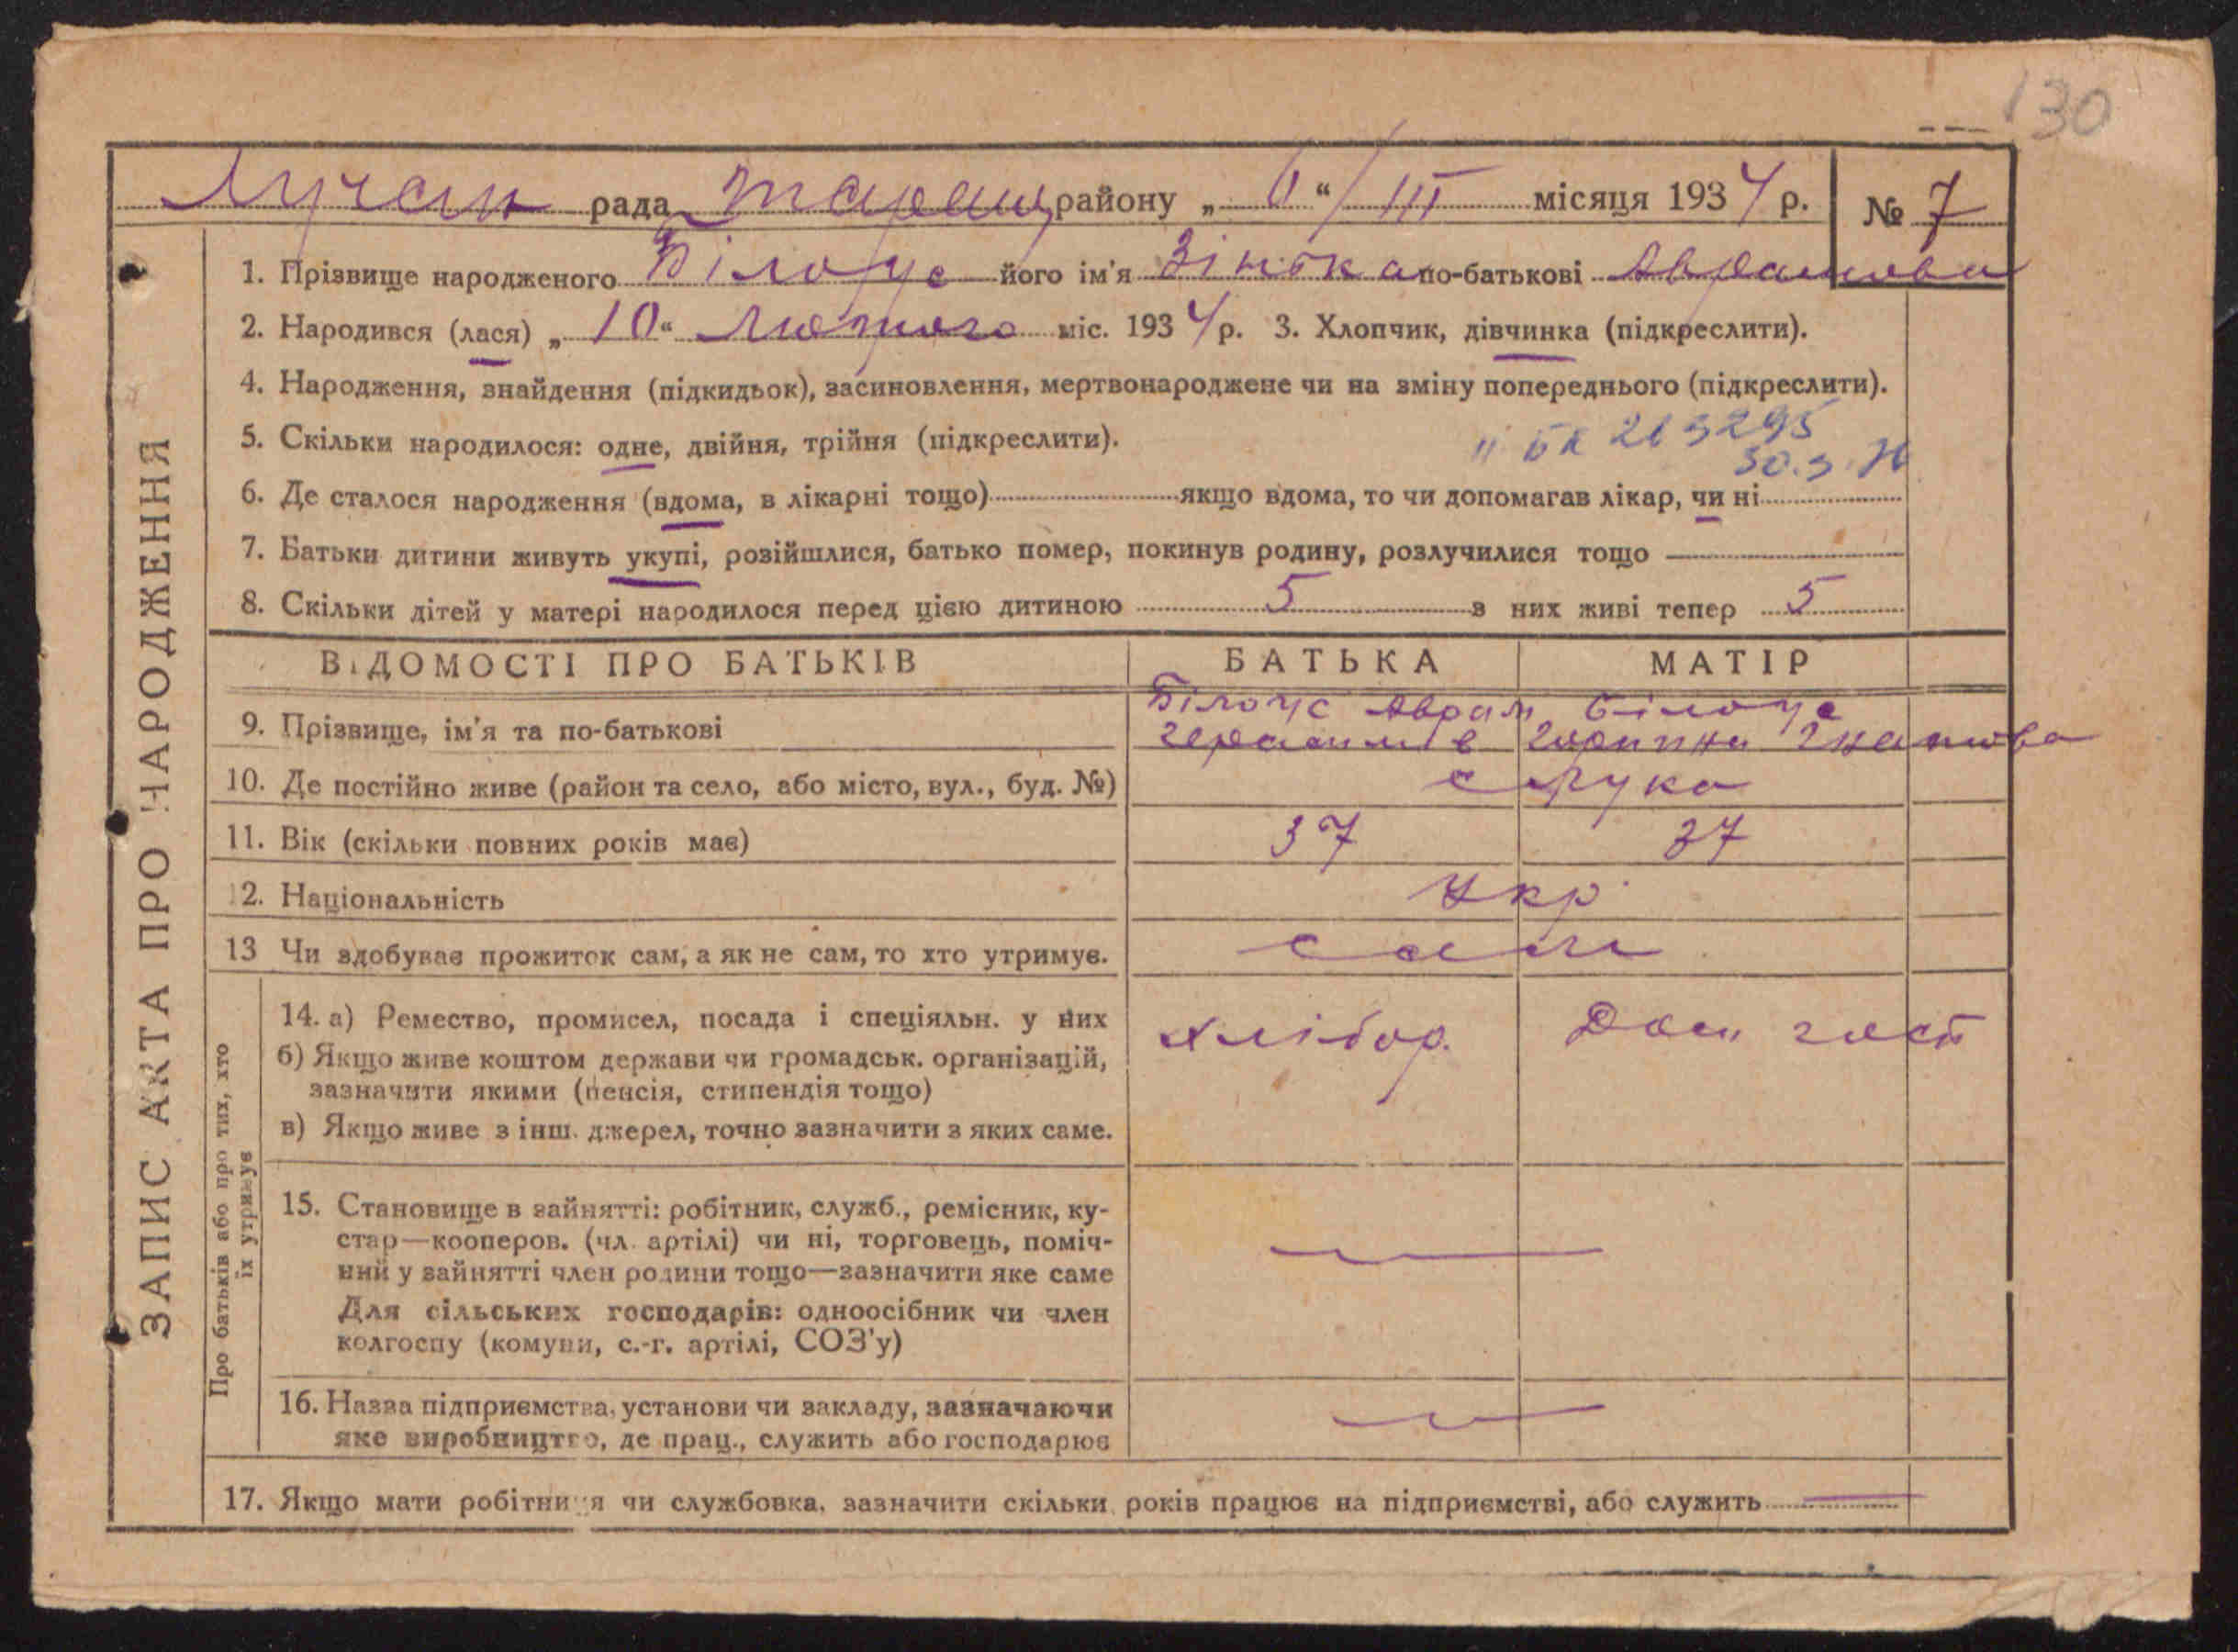 130
Лучан рада Таращ району „ 6 “ / III місяця 1934 р. № 7
1. Прізвище народженого Білоус його ім'я Зінька по-батькові Аврамова
2. Народився (лася) „ 10 “ Лютого міс. 1934 р. 3. Хлопчик, дівчинка (підкреслити).
4. Народження, знайдення (підкидьок), засиновлення, мертвонароджене чи на зміну попереднього (підкреслити).
5. Скільки народилося: одне, двійня, трійня (підкреслити).
6. Де сталося народження (вдома, в лікарні тощо) якщо вдома, то чи допомагав лікар, чи ні
7. Батьки дитини живуть укупі, розійшлися, батько помер, покинув родину, розлучилися тощо
8. Скільки дітей у матері народилося перед цією дитиною 5 з них живі тепер 5
ЗАПИС АКТА ПРО НАРОДЖЕННЯ
ВІДОМОСТІ ПРО БАТЬКІВ БАТЬКА МАТІР
9. Прізвище, ім'я та по-батькові Білоус Аврам Білоус
10. Де постійно живе (район та село, або місто, вул., буд. №)
11. Вік (скільки повних років має) 37 37
12. Національність Укр
13 Чи здобуває прожиток сам, а як не сам, то хто утримує. сам
Про батьків або про тих, хто
їх утримує
14. а) Ремество, промисел, посада і спеціяльн. у них Хлібор. Дом госп
б) Якщо живе коштом держави чи громадськ. організацій,
зазначити якими (пенсія, стипендія тощо)
в) Якщо живе з інш. джерел, точно зазначити з яких саме.
15. Становище в зайнятті: робітник, служб., ремісник, ку-
стар—кооперов. (чл. артілі) чи ні, торговець, поміч-
ний у зайнятті член родини тощо—зазначити яке саме
Для сільських господарів: одноосібник чи член
колгоспу (комуни, с.-г. артілі, СОЗ'у)
16. Назва підприємства, установи чи закладу, зазначаючи
яке виробництво, де прац., служить або господарює
17. Якщо мати робітниця чи службовка, зазначити скільки років працює на підприємстві, або служить